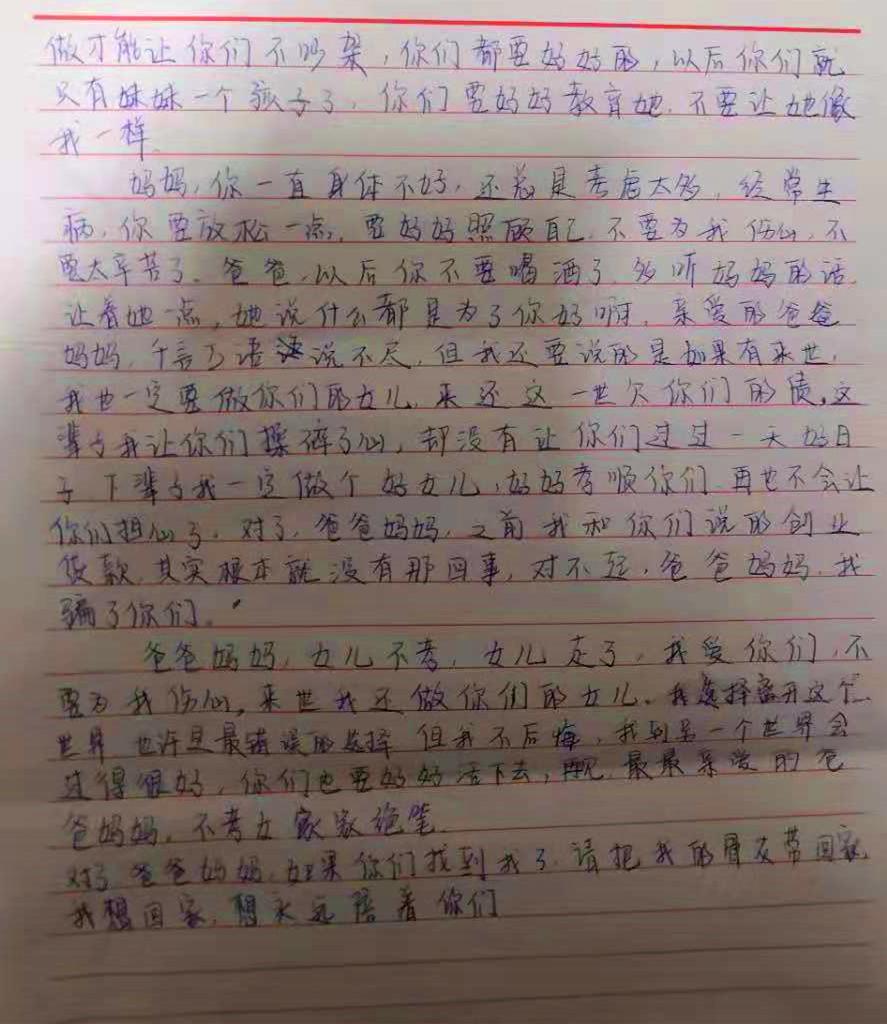 做才能让你们不吵架，你们都要好好的，以后你们就
只有妹妹一个孩子了，你们要好好教育她.不要让她像
我一样.
妈妈，你一直身体不好，还总是考虑太多，经常生
病，你要放松一点，要好好照顾自己.不要为我伤心，不
要太辛苦了.爸爸，以后你不要喝酒了，多听妈妈的话，
让着她一点，她说什么都是为了你好啊，亲爱的爸爸
妈妈，千言万语说不尽，但我还要说的是如果有来世，
我也一定要做你们的女儿，来还这一世欠你们的债。这
辈子我让你们操碎了心，却没有让你们过过一天好日
子 下辈子我一定做个好女儿，好好孝顺你们 再也不会让
你们担心了，对了，爸爸妈妈，之前我和你们说的创业
贷款，其实根本就没有那回事，对不起，爸爸妈妈.我
骗了你们。
爸爸妈妈，女儿不孝，女儿走了，我爱你们，不
要为我伤心。来世我还做你们的女儿。我选择离开这个
世界 也许是最错误的选择 但我不后悔，我到另一个世界会
过得很好，你们也要好好活下去，再见 最最亲爱的爸
爸妈妈，不孝女 家家绝笔.
对了 爸爸妈妈，如果你们找到我了.请把我的骨灰带回家，
我想回家，想永远陪着你们